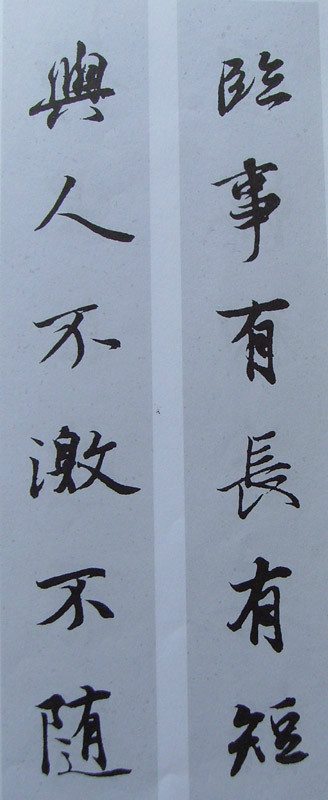 臨事有長有短
與人不激不隨